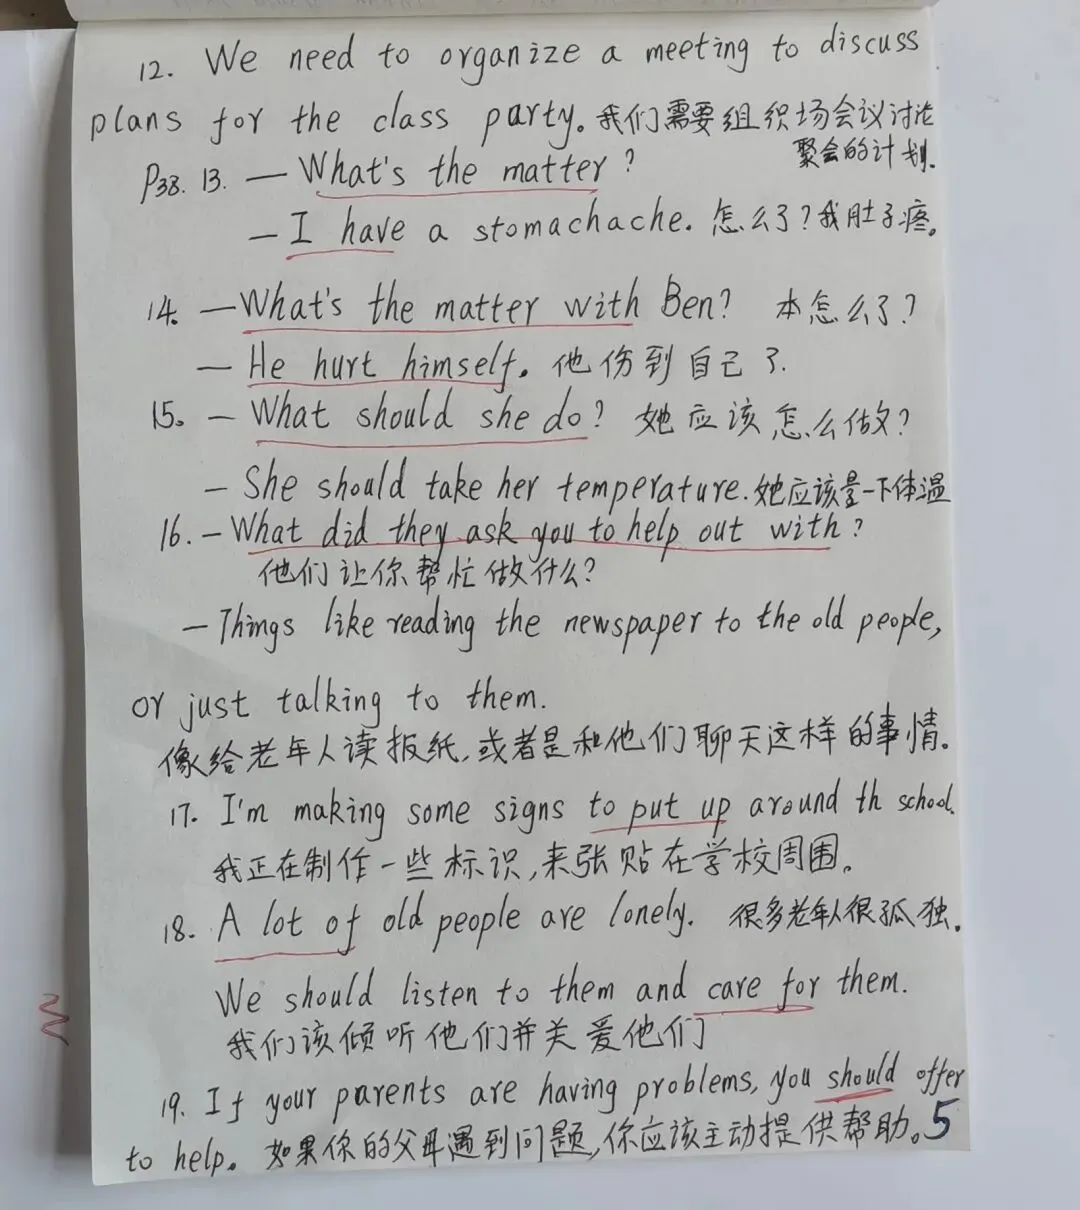 12. We need to organize a meeting to discuss
plans for the class party。我们需要组织场会议讨论
聚会的计划.
P38. 13. — What's the matter?
— I have a stomachache. 怎么了?我肚子疼。
14. — What's the matter with Ben? 本怎么了?
— He hurt himself. 他伤到自己了.
15. — What should she do? 她应该怎么做?
— She should take her temperature. 她应该量一下体温
16. — What did they ask you to help out with?
他们让你帮忙做什么?
— Things like reading the newspaper to the old people,
or just talking to them.
像给老年人读报纸,或者是和他们聊天这样的事情。
17. I'm making some signs to put up around th school.
我正在制作一些标识,来张贴在学校周围。
18. A lot of old people are lonely. 很多老年人很孤独.
We should listen to them and care for them.
我们该倾听他们并关爱他们
19. If your parents are having problems, you should offer
to help。如果你的父母遇到问题,你应该主动提供帮助。5